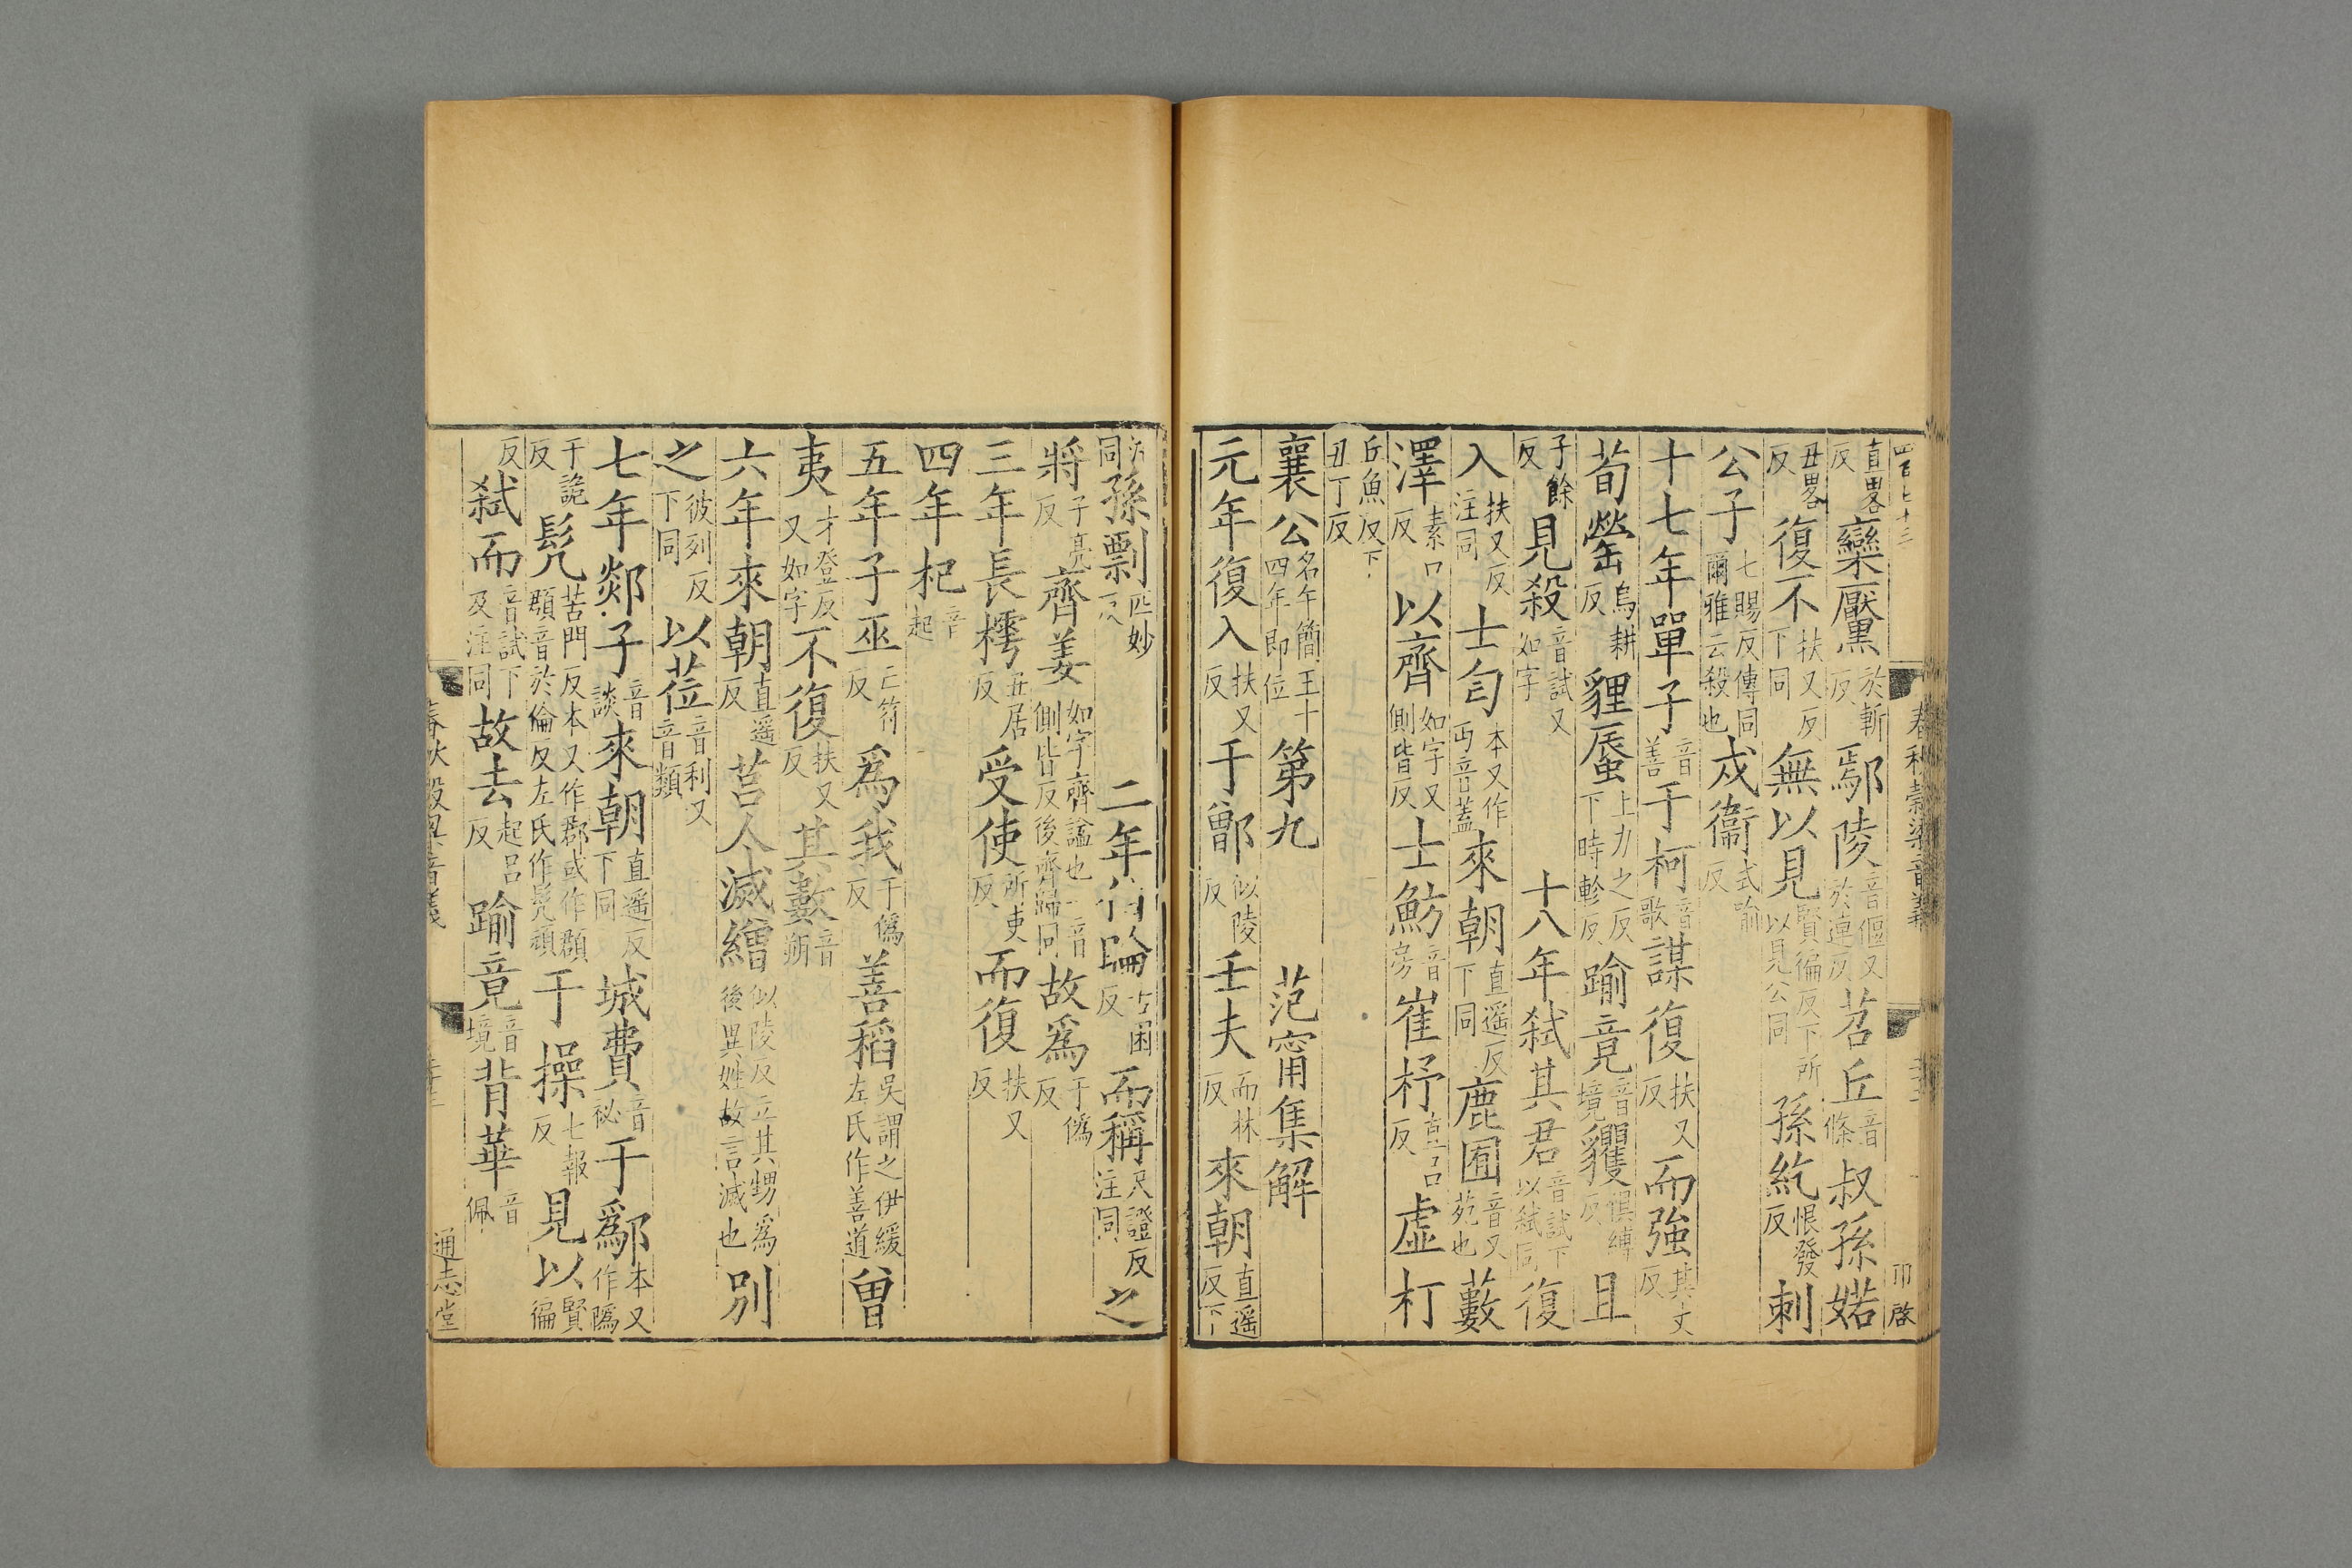 四百七十三
春秋穀梁音義
卬啓
直畧反欒黶於斬反鄢陵音偃又於連反苕丘音條叔孫婼
丑畧反復不扶又反下同無以見賢徧反下所以見公同孫紇恨發反刺
公子七賜反傳同爾雅云殺也戍衞式喻反
十七年單子音善于柯音歌謀復扶又反而強其丈反
荀罃烏耕反貍蜃上力之反下時軫反踰竟音境貜俱縛反且
子餘反見殺音試又如字十八年弒其君音試下以弒同復
入扶又反注同士匄本又作丐音蓋來朝直遥反下同鹿囿音又苑也藪
澤素口反以齊如字又側皆反士魴音房崔杼直呂反虛朾
丘魚反下丑丁反
襄公名午簡王十四年即位第九 范甯集解
元年復入扶又反于鄫似陵反壬夫而林反來朝直遥反下
同孫剽匹妙反二年伯睔古困反而稱尺證反注同之
將子亮反齊姜如字齊謚也一音側皆反後齊歸同故爲于僞反
三年長樗丑居反受使所吏反而復扶又反
四年杞音起
五年子巫亡符反爲我于僞反善稻吳謂之伊緩左氏作善道曾
夷才登反又如字不復扶又反其數音朔
六年來朝直遥反莒人滅繒似陵反立其甥爲後異姓故言滅也別
之彼列反下同以莅音利又音類
七年郯子音談來朝直遥反下同城費音祕于鄬本又作隝
于詭反髠苦門反本又作郡或作頵頵音於倫反左氏作髠頑于操七報反見以賢徧
反弒而音試下及注同故去起呂反踰竟音境背華音佩
春秋穀梁音義
通志堂